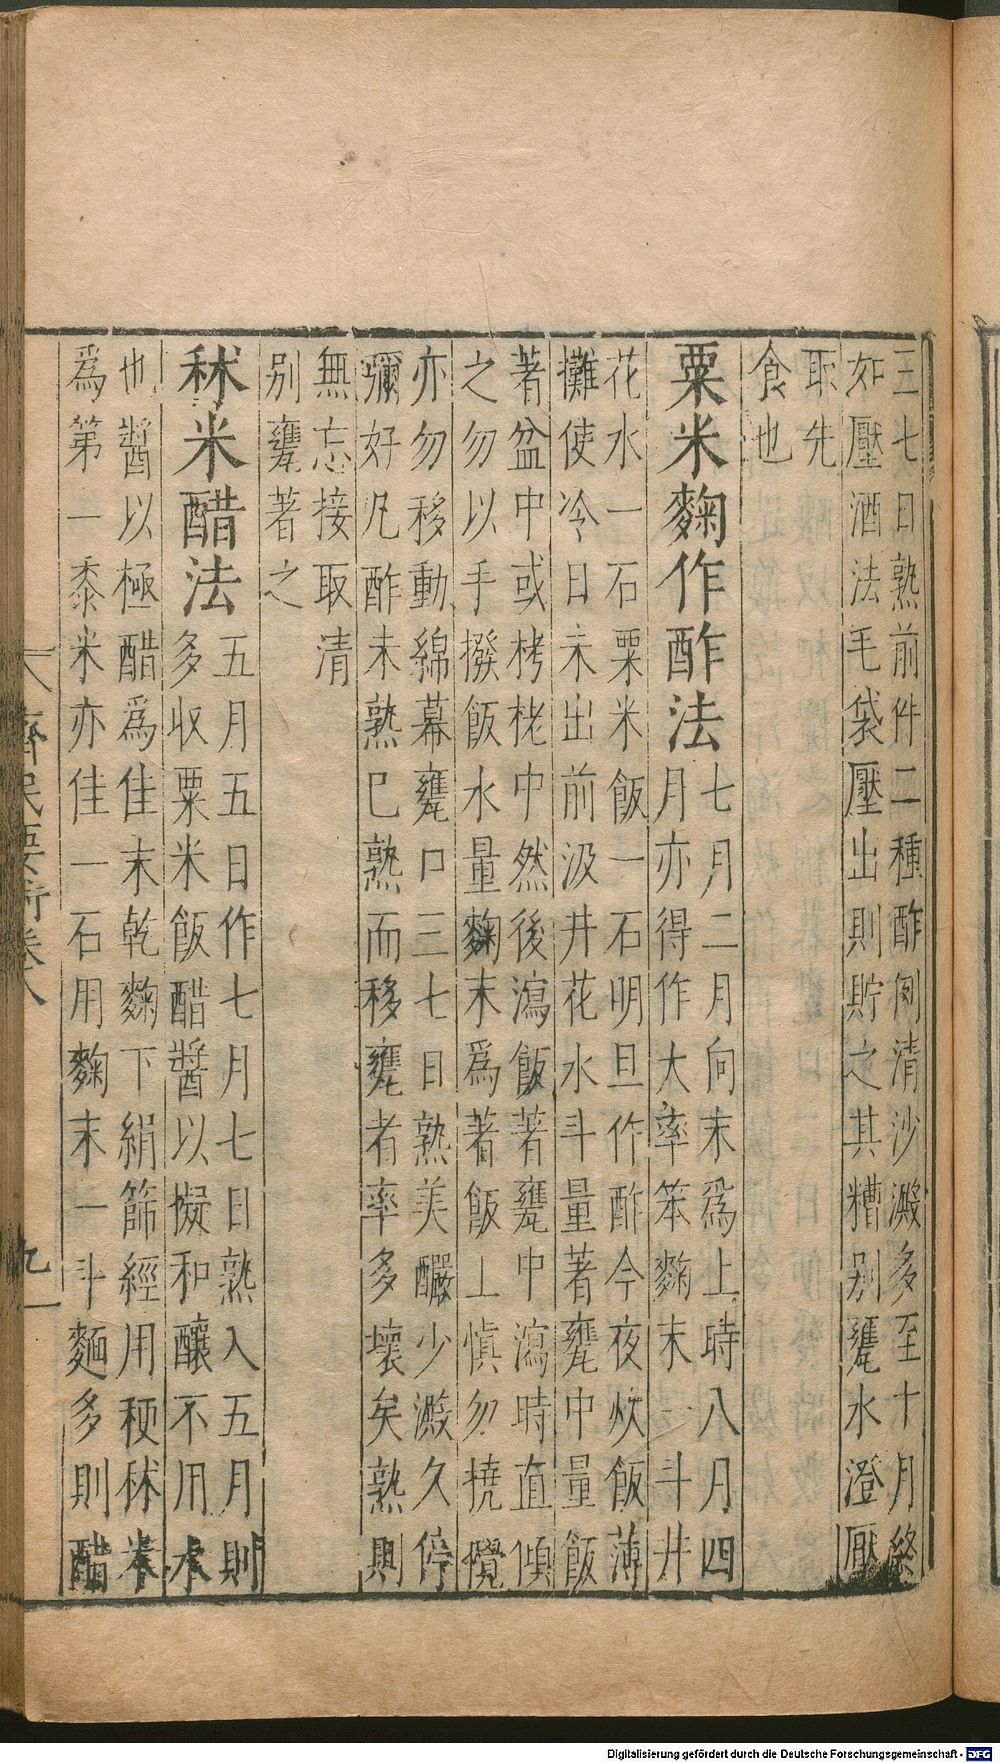 三七日熟前件二種酢例清沙澱多至十月終
如壓酒法毛袋壓出則貯之其糟別甕水澄壓
取先
食也
粟米麴作酢法
七月二月向末爲上時八月四
月亦得作大率笨麴末一斗井
花水一石粟米飯一石明旦作酢今夜炊飯薄
攤使冷日未出前汲井花水斗量著甕中量飯
著盆中或栲栳中然後瀉飯著甕中瀉時直傾
之勿以手撥飯水量麴末爲著飯上愼勿撓攪
亦勿移動綿幕甕口三七日熟美釅少澱久停
彌好凡酢未熟已熟而移甕者率多壞矣熟則
無忘接取清
別甕著之
秫米醋法
五月五日作七月七日熟入五月則
多收粟米飯醋醬以擬和釀不用水
也醬以極醋爲佳末乾麴下絹篩經用稉秫米
爲第一黍米亦佳一石用麴末一斗麵多則醋
齊民要術卷八
九
Digitalisierung gefördert durch die Deutsche Forschungsgemeinschaft - DFG